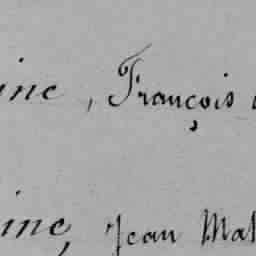 ine, François
ine, Jean Mat